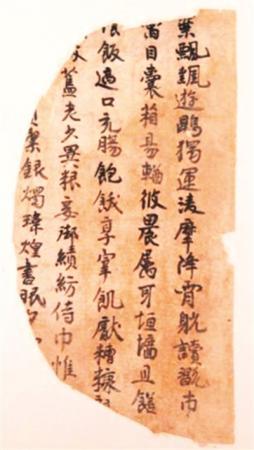 葉飄颻遊鵾獨運淩摩降霄躭讀翫市
寓目囊箱易輶攸畏屬耳垣墻且饍
飯適口充腸飽飫享宰飢猒糟糠
舊老少異粮妾御績紡侍巾帷
潔銀燭煒煌晝眠夕